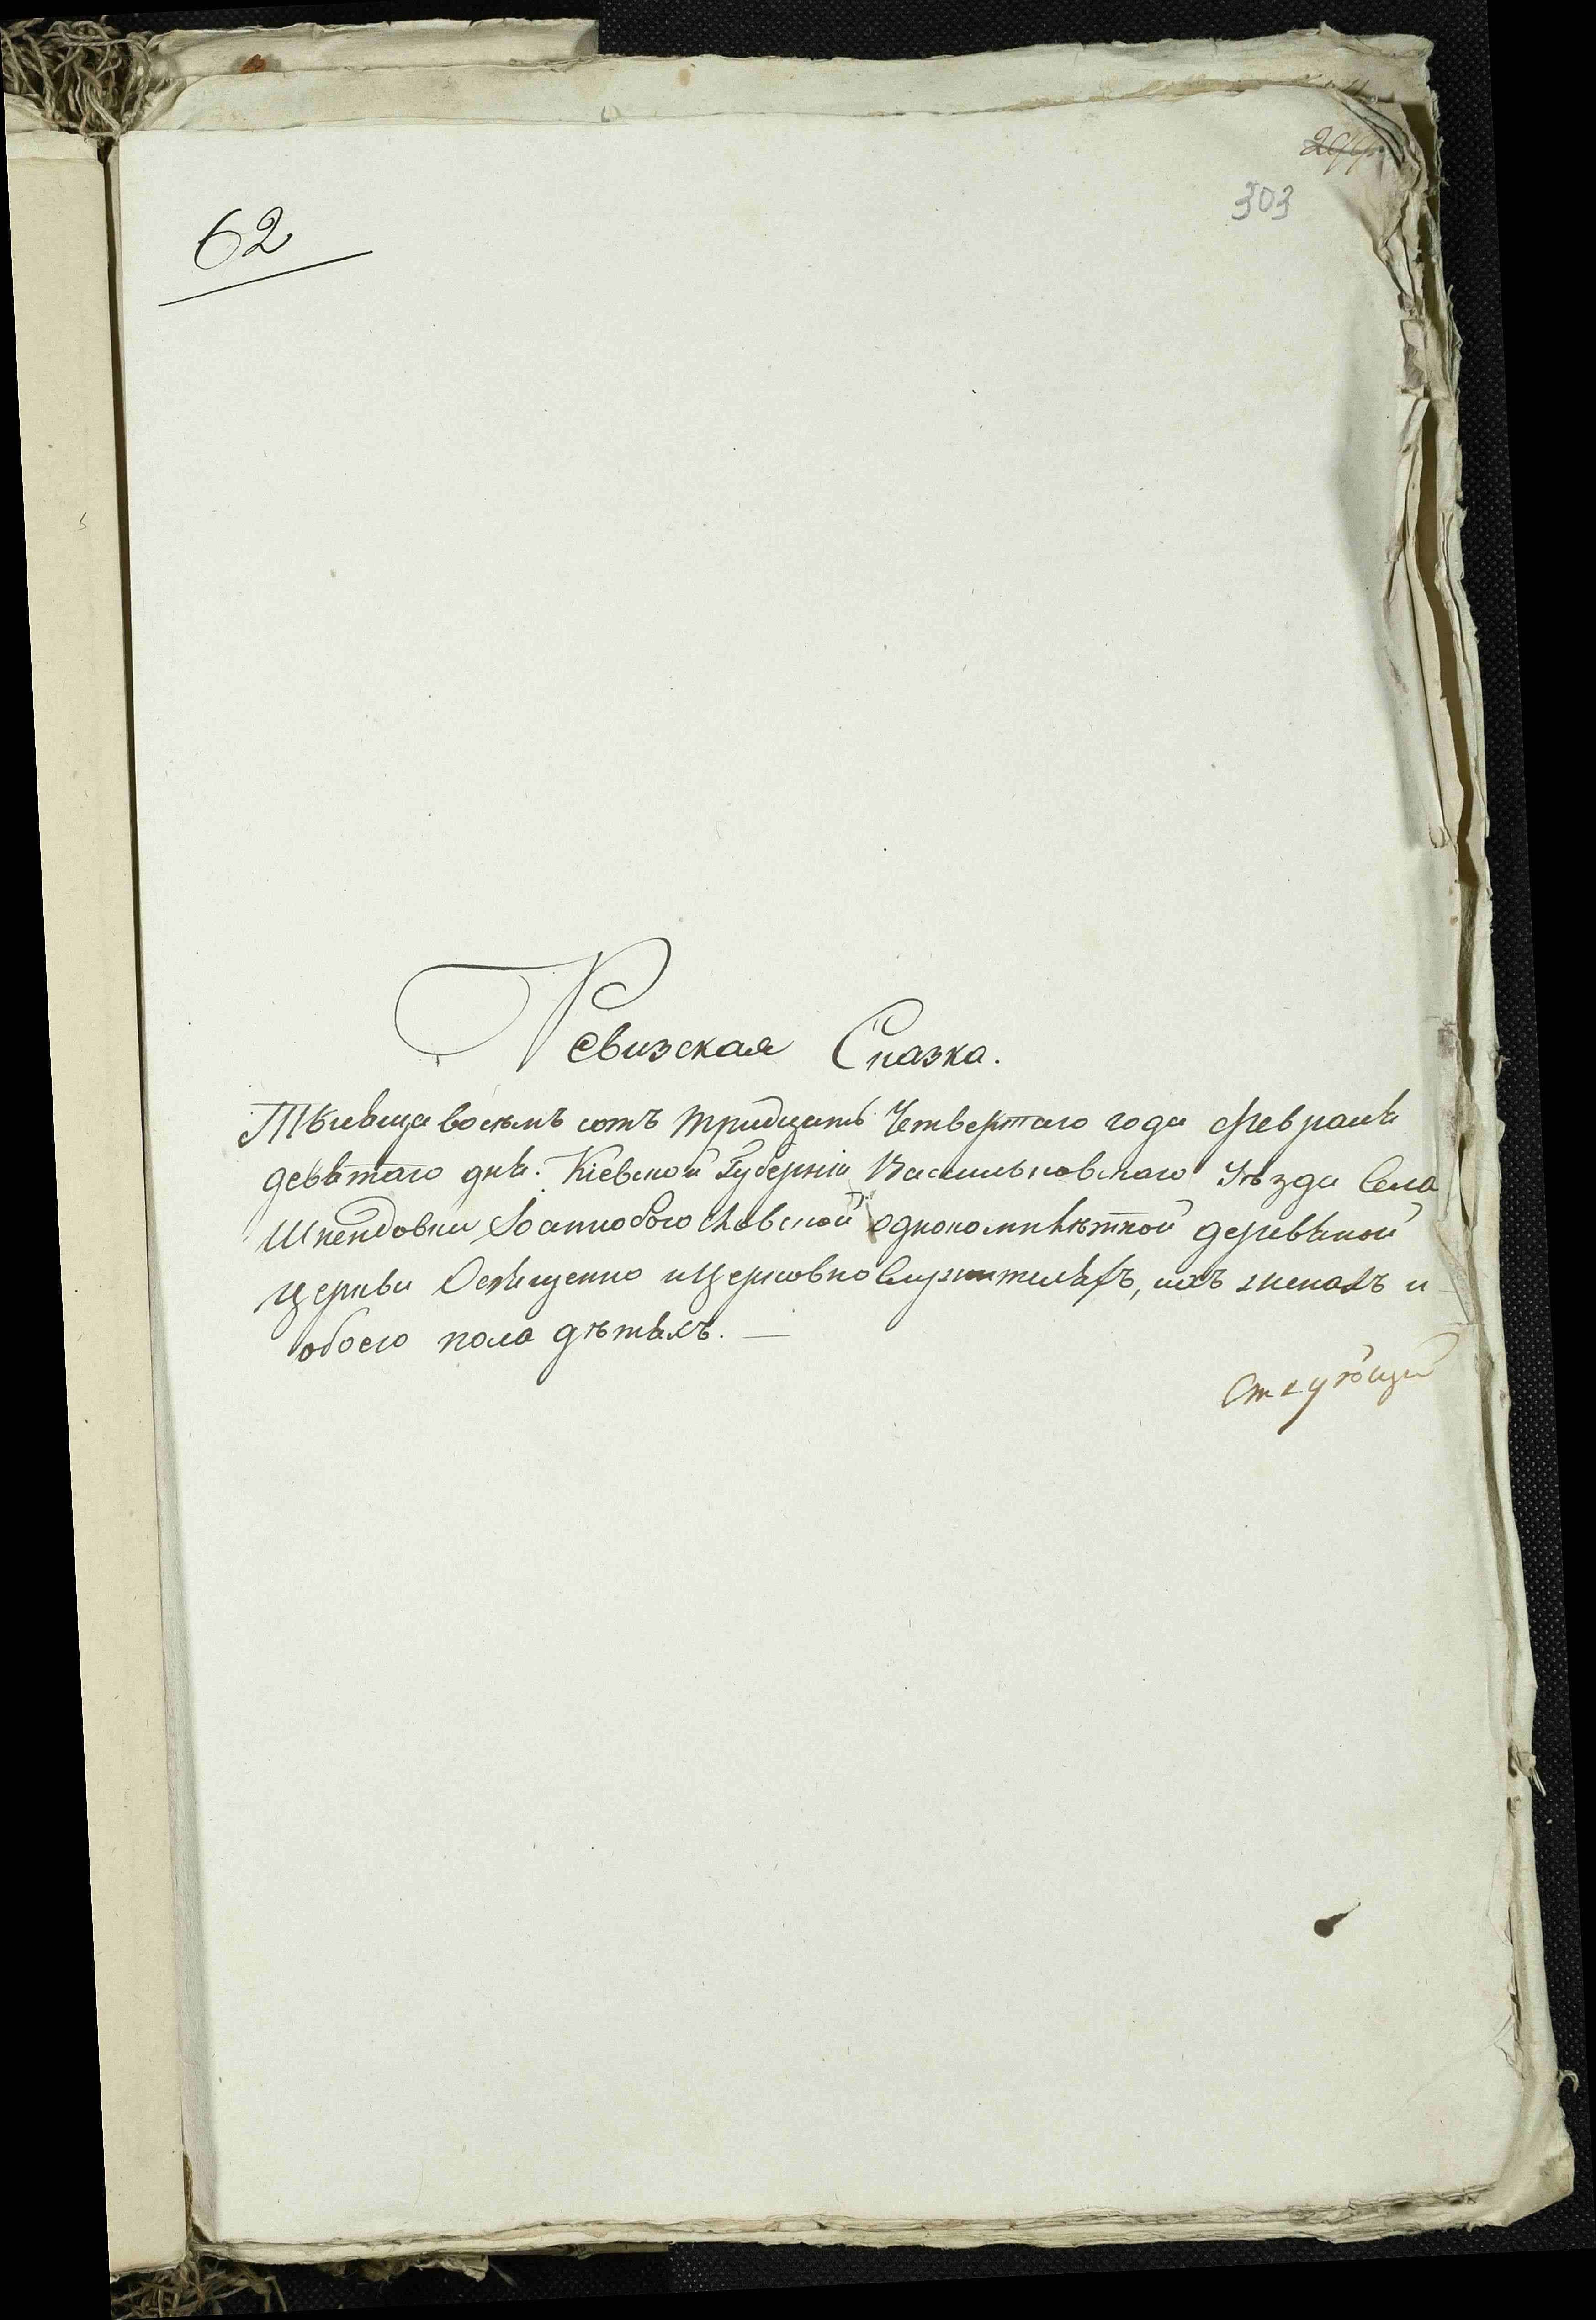 303
62
Ревизская Сказка.
Тысяща восемъ сотъ тридцать Четвертаго года февраля
девятаго дня. Кіевской Губерніи Васильковскаго Уѣзда Села
Шпендовки Іоаннобогословской однокомплѣтной деревяной
церкви Освященно и Церковно Служителяхъ, ихъ женахъ и
обоего пола дѣтяхъ. —